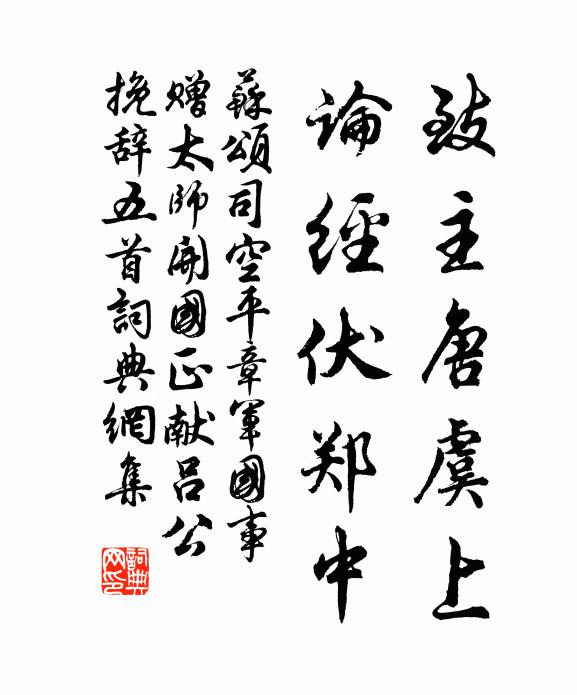 致主唐虞上
論經伏郑中
蘇頌司空平章軍國事
赠太師開國正献呂公
挽辞五首詞典網集
詞典网印